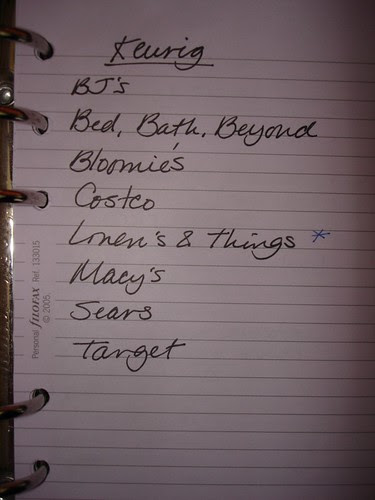 Keurig
BJ's
Bed, Bath, Beyond
Bloomie's
Costco
Linen's & Things *
Macy's
Sears
Target
Personal filofax Ref. 133015
© 2005